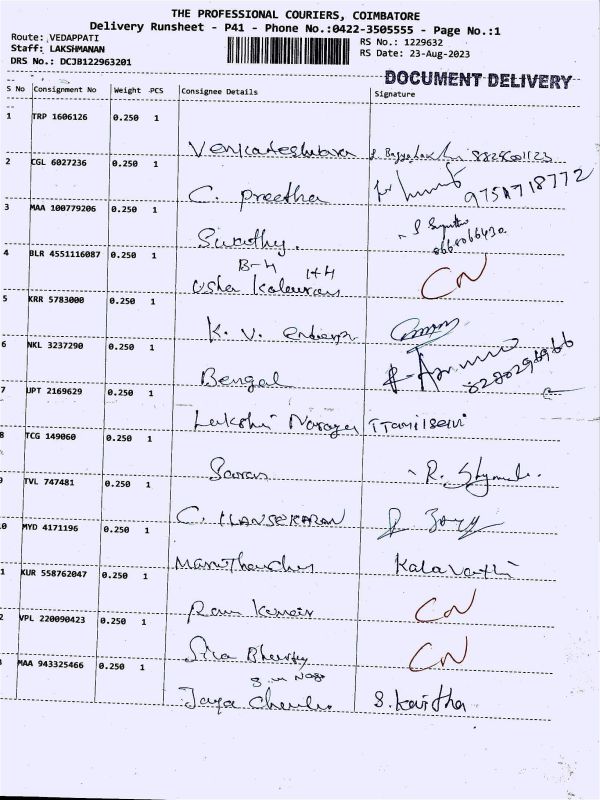 THE PROFESSIONAL COURIERS, COIMBATORE
Delivery Runsheet - P41 - Phone No.:0422-3505555 - Page No.:1
Route: VEDAPPATI
RS No.: 1229632
Staff: LAKSHMANAN
RS Date: 23-Aug-2023
DRS No.: DCJB122963201
DOCUMENT DELIVERY
S No Consignment No Weight PCS Consignee Details Signature
1 TRP 1606126 0.250 1
Venkateshwara
2 CGL 6027236 0.250 1
C. Preetha 9751718772
3 MAA 100779206 0.250 1
4 BLR 4551116087 0.250 1
Usha CN
5 KRR 5783000 0.250 1
K. V.
6 NKL 3237290 0.250 1
Bengal
7 UPT 2169629 0.250 1
Lakshmi Tamilselvi
8 TCG 149060 0.250 1
Saran R.
9 TVL 747481 0.250 1
C. ILANSEKARAN
0 MYD 4171196 0.250 1
Kalavathi
1 KUR 558762047 0.250 1
Ram Kumar CN
2 VPL 220090423 0.250 1
CN
3 MAA 943325466 0.250 1
Jaya S. Kavitha